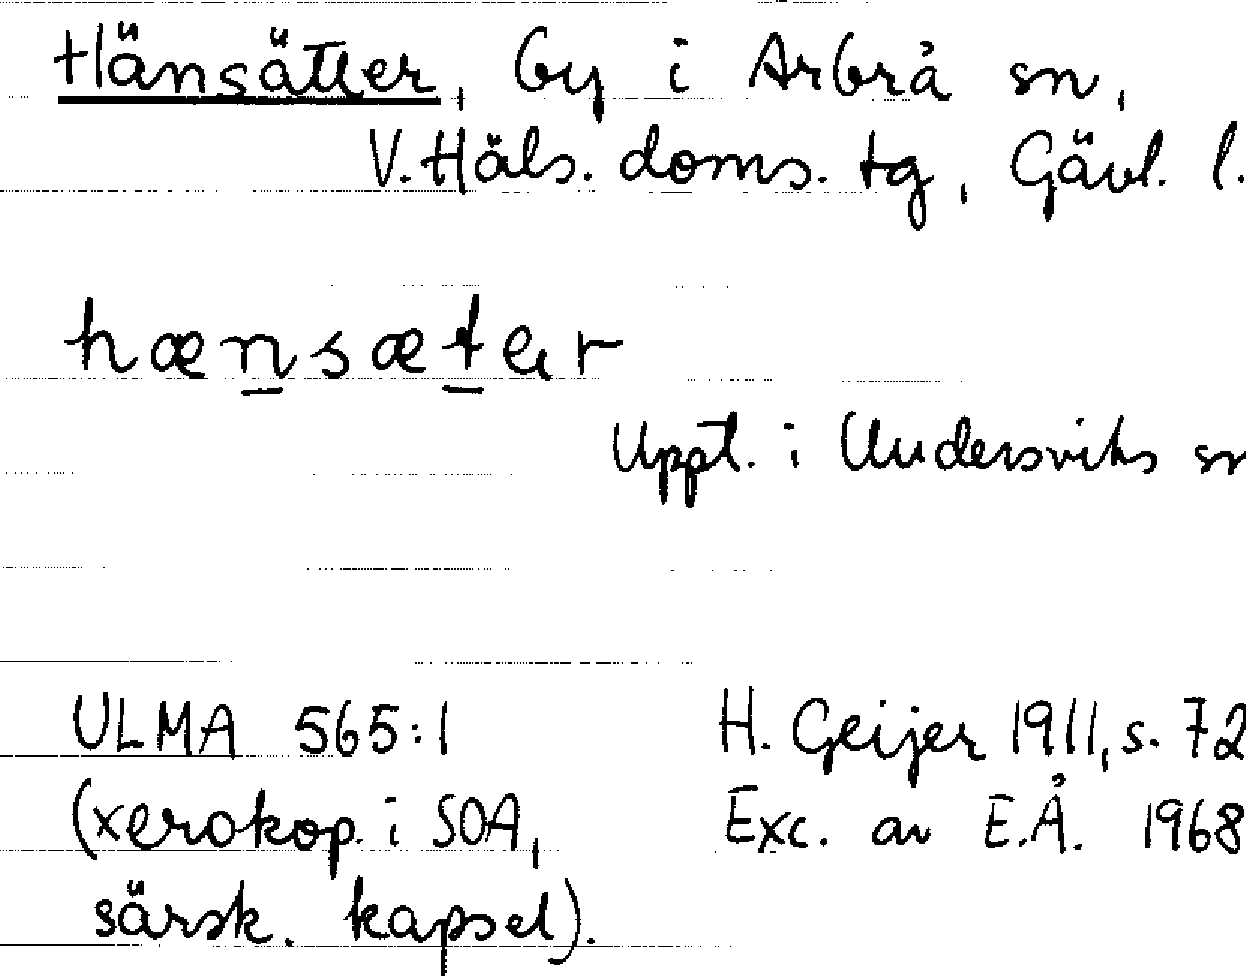 Hänsätter, by i Arbrå sn,
V. Häls. doms. tg, Gävl. l.
hæn̲sæt̲er
Uppt. i Undersviks sn
ULMA 565:1 H. Geijer 1911, s. 72
(xerokop. i SOA, Exc. av E.Å. 1968
särsk. kapsel).